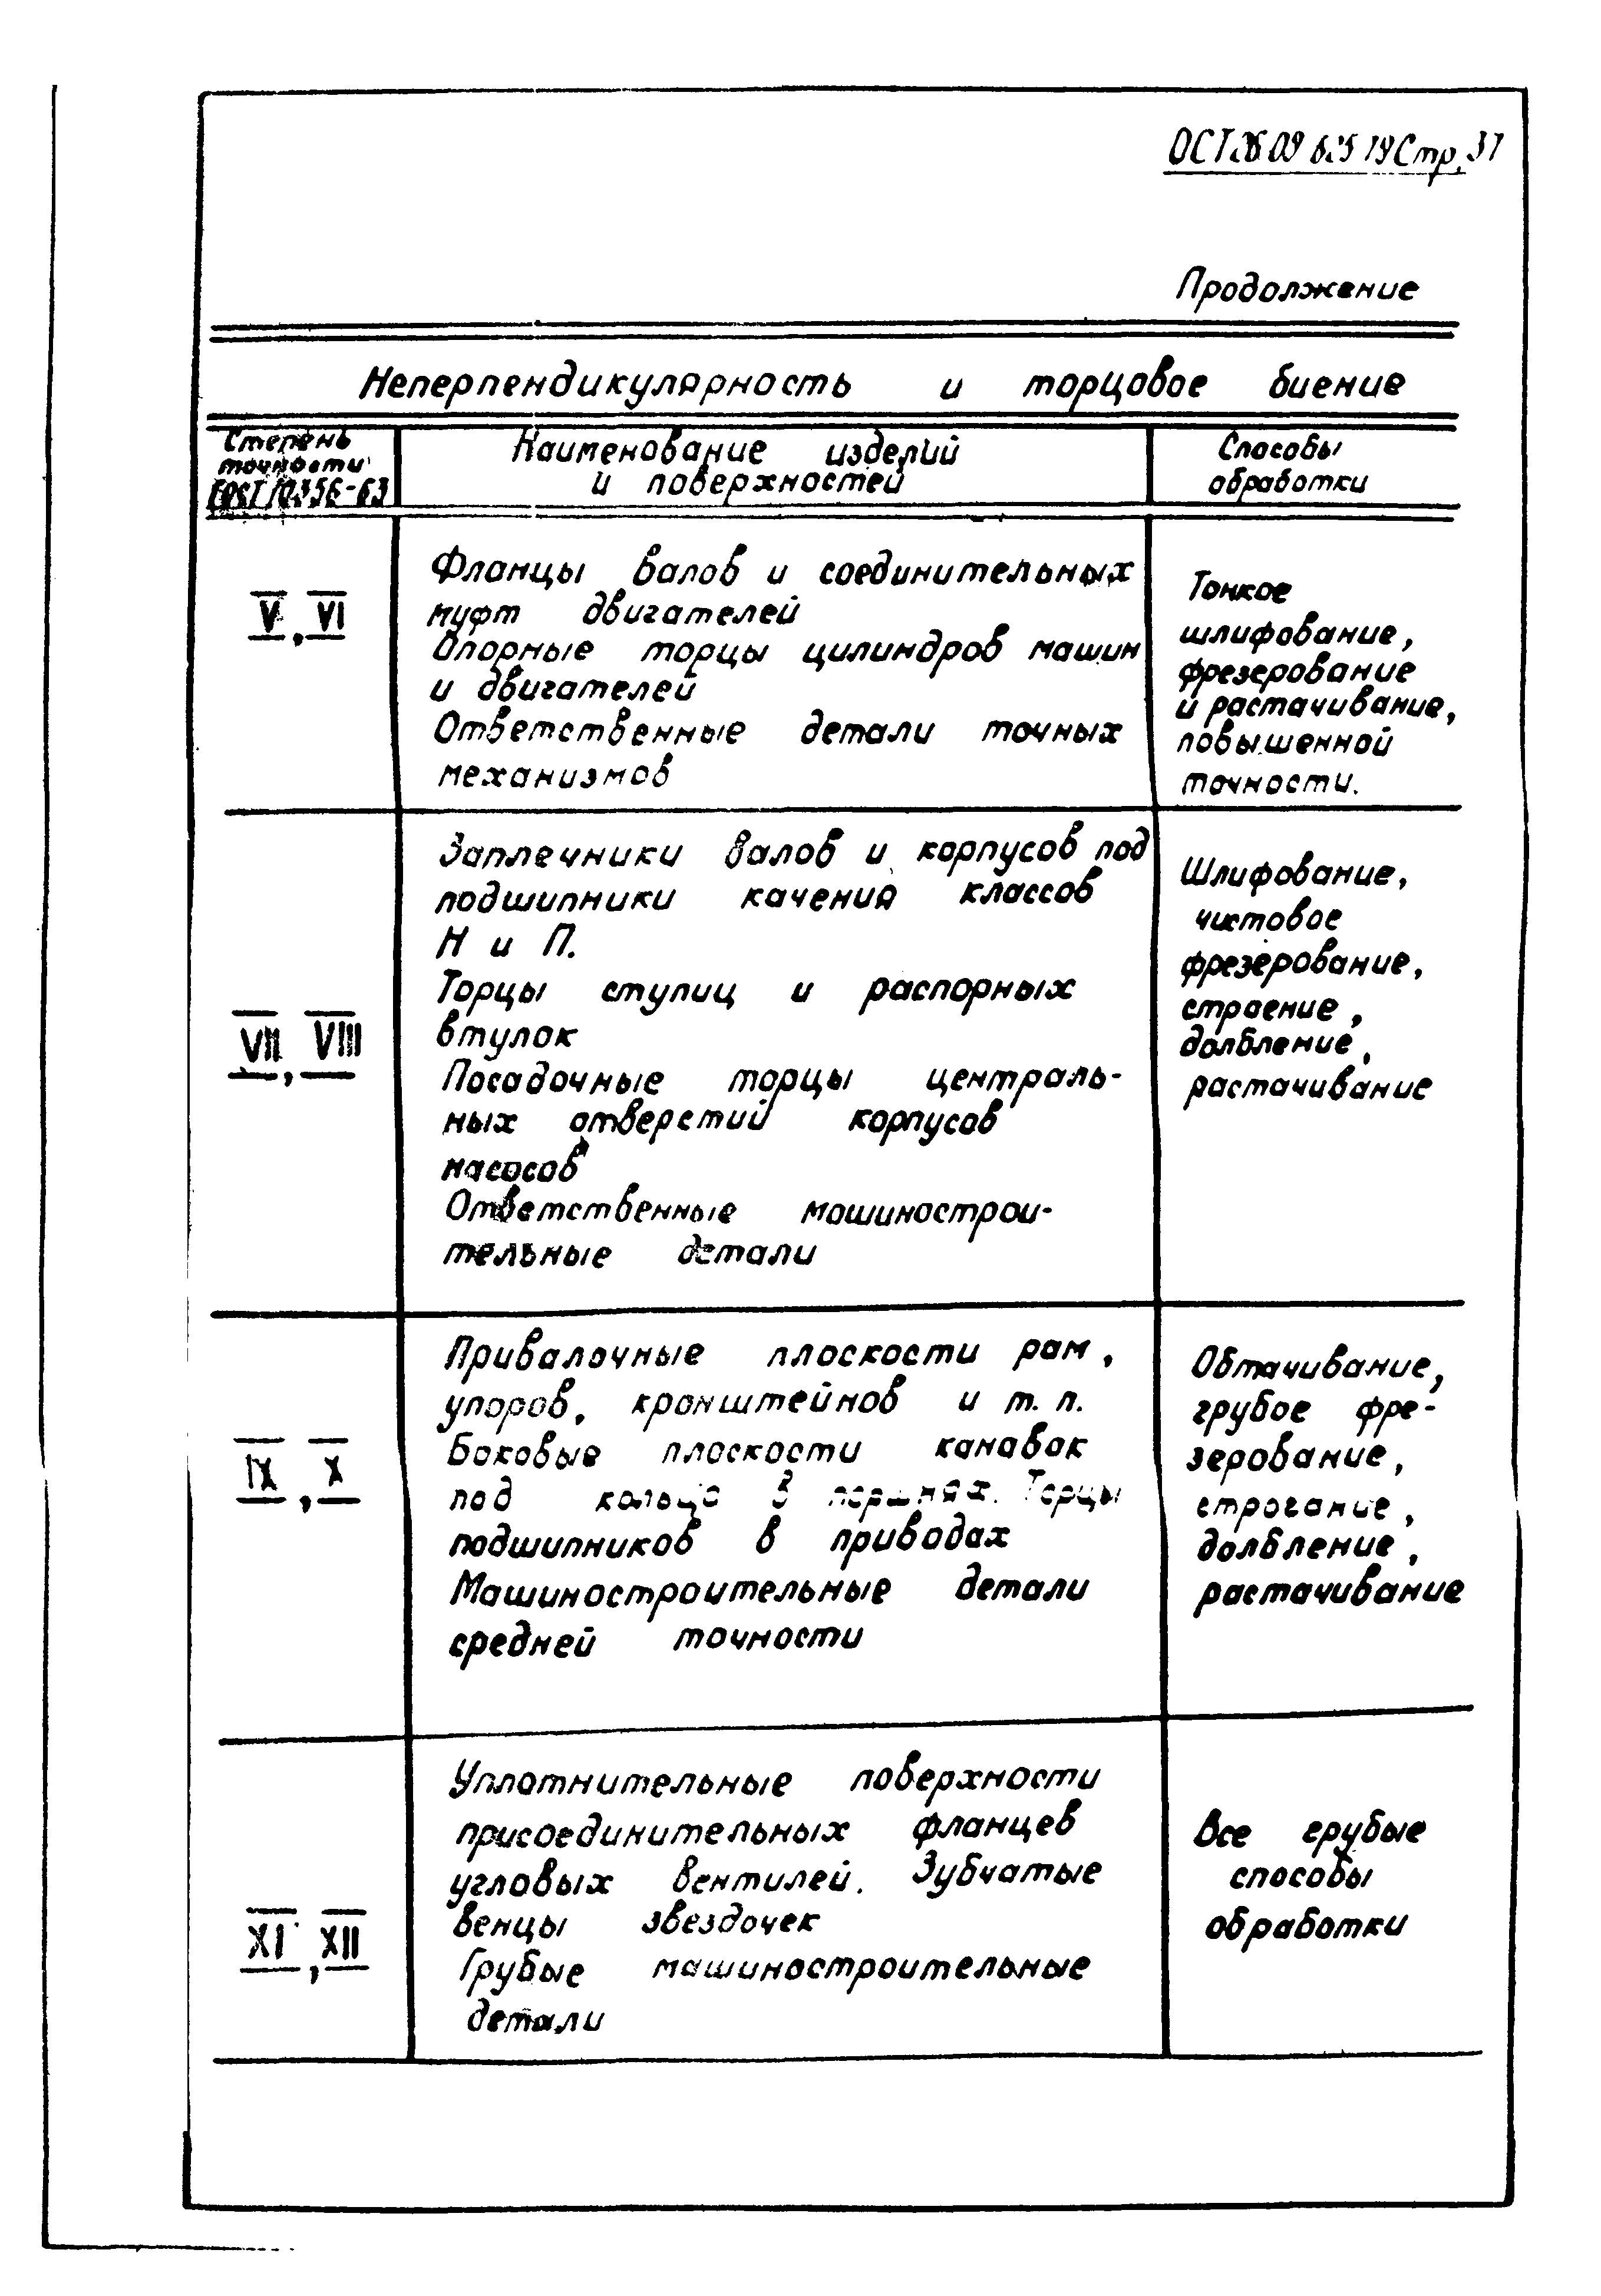 Стр. 37
Продолжение
Неперпендикулярность и торцовое биение
Степень
точности
ГОСТ 10356-63
Наименование изделий
и поверхностей
Способы
обработки
V, VI
Фланцы валов и соединительных
муфт двигателей
Опорные торцы цилиндров машин
и двигателей
Ответственные детали точных
механизмов
Тонкое
шлифование,
фрезерование
и растачивание,
повышенной
точности.
VII, VIII
Заплечники валов и корпусов под
подшипники качения классов
Н и П.
Торцы ступиц и распорных
втулок
Посадочные торцы централь-
ных отверстий корпусов
насосов
Ответственные машинострои-
тельные детали
Шлифование,
чистовое
фрезерование,
строение,
долбление,
растачивание
IX, X
Привалочные плоскости рам,
упоров, кронштейнов и т. п.
Боковые плоскости канавок
под кольца в поршнях. Торцы
подшипников в приводах
Машиностроительные детали
средней точности
Обтачивание,
грубое фре-
зерование,
строгание,
долбление,
растачивание
XI, XII
Уплотнительные поверхности
присоединительных фланцев
угловых вентилей. Зубчатые
венцы звездочек
Грубые машиностроительные
детали
Все грубые
способы
обработки